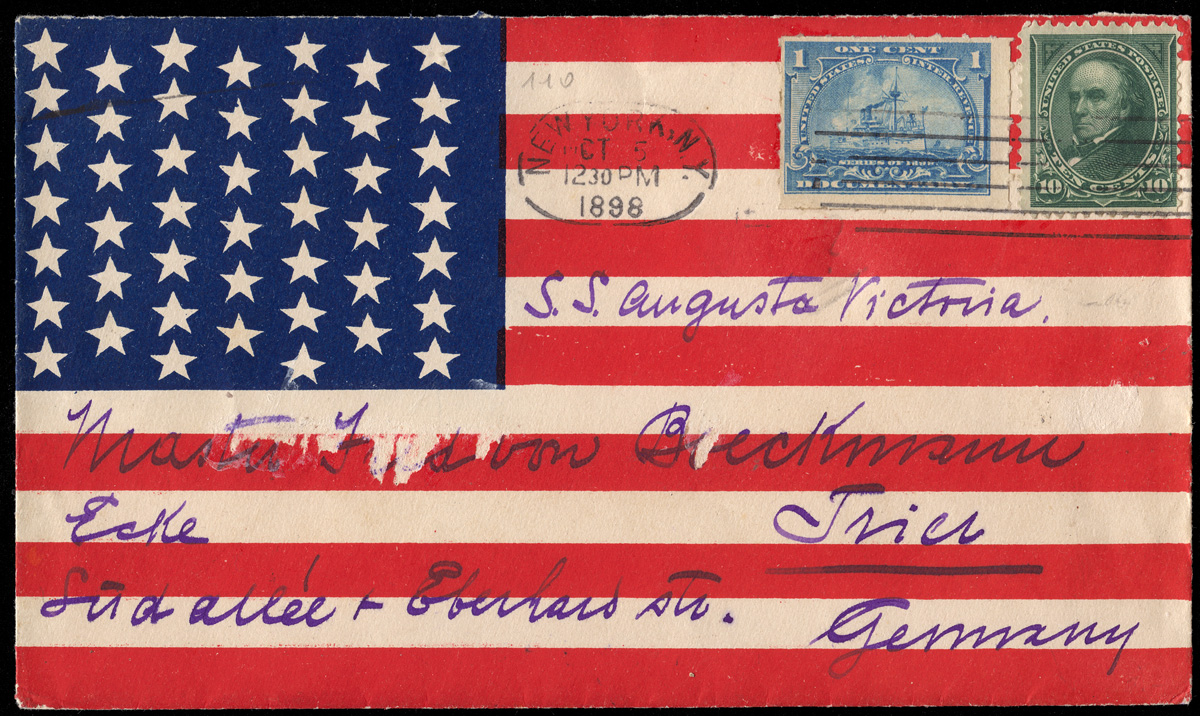 110
ONE CENT
1 1
UNITED STATES INTER. REVENUE
DOCUMENTARY
UNITED STATES POSTAGE
10 TEN CENTS 10
NEW YORK, N.Y.
OCT 5
1230 PM
1898
S.S. Augusta Victoria.
Master Fred von Boeckmann
Ecke
Trier
Südallée + Eberhard str.
Germany